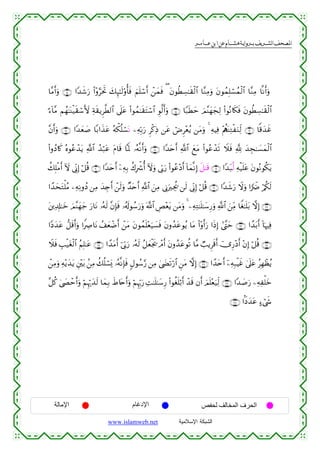 المصحف الشريف برواية هشام عن ابن عامر
وَأَنَّا مِنَّا ٱلْمُسْلِمُونَ وَمِنَّا ٱلْقَٰسِطُونَ ۖ فَمَنْ أَسْلَمَ فَأُو۟لَٰٓئِكَ تَحَرَّوْا۟ رَشَدًا وَأَمَّا
ٱلْقَٰسِطُونَ فَكَانُوا۟ لِجَهَنَّمَ حَطَبًا وَأَن لَّوِ ٱسْتَقَٰمُوا۟ عَلَى ٱلطَّرِيقَةِ لَأَسْقَيْنَٰهُم مَّآءً
غَدَقًا لِّنَفْتِنَهُمْ فِيهِ ۚ وَمَن يُعْرِضْ عَن ذِكْرِ رَبِّهِۦ نَسْلُكْهُ عَذَابًا صَعَدًا وَأَنَّ
ٱلْمَسَٰجِدَ لِلَّهِ فَلَا تَدْعُوا۟ مَعَ ٱللَّهِ أَحَدًا وَأَنَّهُۥ لَمَّا قَامَ عَبْدُ ٱللَّهِ يَدْعُوهُ كَادُوا۟
يَكُونُونَ عَلَيْهِ لُبَدًا قَٰلَ إِنَّمَآ أَدْعُوا۟ رَبِّى وَلَآ أُشْرِكُ بِهِۦٓ أَحَدًا قُلْ إِنِّى لَآ أَمْلِكُ
لَكُمْ ضَرًّا وَلَا رَشَدًا قُلْ إِنِّى لَن يُجِيرَنِى مِنَ ٱللَّهِ أَحَدٌ وَلَنْ أَجِدَ مِن دُونِهِۦ مُلْتَحَدًا
إِلَّا بَلَٰغًا مِّنَ ٱللَّهِ وَرِسَٰلَٰتِهِۦ ۚ وَمَن يَعْصِ ٱللَّهَ وَرَسُولَهُۥ فَإِنَّ لَهُۥ نَارَ جَهَنَّمَ خَٰلِدِينَ
فِيهَآ أَبَدًا حَتَّىٰٓ إِذَا رَأَوْا۟ مَا يُوعَدُونَ فَسَيَعْلَمُونَ مَنْ أَضْعَفُ نَاصِرًا وَأَقَلُّ عَدَدًا
قُلْ إِنْ أَدْرِىٓ أَقَرِيبٌ مَّا تُوعَدُونَ أَمْ يَجْعَلُ لَهُۥ رَبِّىٓ أَمَدًا عَٰلِمُ ٱلْغَيْبِ فَلَا
يُظْهِرُ عَلَىٰ غَيْبِهِۦٓ أَحَدًا إِلَّا مَنِ ٱرْتَضَىٰ مِن رَّسُولٍ فَإِنَّهُۥ يَسْلُكُ مِنۢ بَيْنِ يَدَيْهِ وَمِنْ
خَلْفِهِۦ رَصَدًا لِّيَعْلَمَ أَن قَدْ أَبْلَغُوا۟ رِسَٰلَٰتِ رَبِّهِمْ وَأَحَاطَ بِمَا لَدَيْهِمْ وَأَحْصَىٰ كُلَّ
شَىْءٍ عَدَدًۢا
الحرف المخالف لحفص الإدغام الإمالة
الشبكة الإسلامية www.islamweb.net